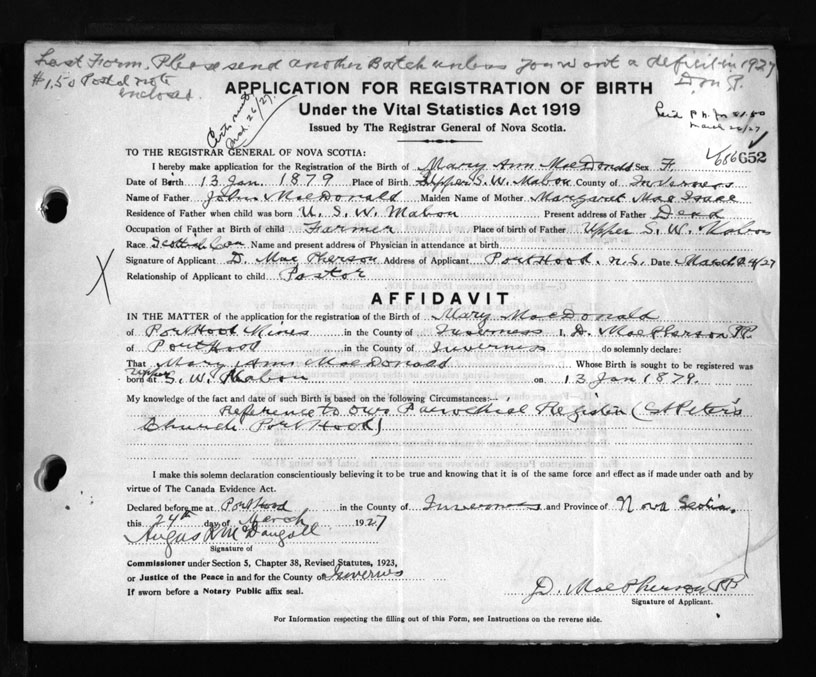 Last Form. Please send another Batch unless you want a deficit in 1927
#1.50 Postal note D. M P.
enclosed.
APPLICATION FOR REGISTRATION OF BIRTH
Under the Vital Statistics Act 1919
Issued by The Registrar General of Nova Scotia.
Mch. 26/27.
Paid P. N. for $1.50
March 26/27
TO THE REGISTRAR GENERAL OF NOVA SCOTIA:
652
I hereby make application for the Registration of the Birth of Mary Ann MacDonald Sex F.
Date of Birth 13 Jan. 1879 Place of Birth Upper S. W. Mabou County of Inverness
Name of Father John MacDonald Maiden Name of Mother Margaret MacIsaac
Residence of Father when child was born U. S. W. Mabou Present address of Father Dead
Occupation of Father at Birth of child Farmer Place of birth of Father Upper S. W. Mabou
Race Scottish Can Name and present address of Physician in attendance at birth
Signature of Applicant D. MacPherson Address of Applicant Port Hood. N.S. Date March 24/27
Relationship of Applicant to child Pastor
AFFIDAVIT
IN THE MATTER of the application for the registration of the Birth of Mary MacDonald
of Port Hood Mines in the County of Inverness I, D. MacPherson PP.
of Port Hood in the County of Inverness do solemnly declare:
That Mary Ann MacDonald Whose Birth is sought to be registered was
born at Upper S. W. Mabou on 13 Jan 1879.
My knowledge of the fact and date of such Birth is based on the following Circumstances:—
Reference to our Parochial Register (St Peter's
Church Port Hood)
I make this solemn declaration conscientiously believing it to be true and knowing that it is of the same force and effect as if made under oath and by
virtue of The Canada Evidence Act.
Declared before me at Port Hood in the County of Inverness and Province of Nova Scotia.
this 24th day of March 1927
Angus R McDougall
Signature of
Commissioner under Section 5, Chapter 38, Revised Statutes, 1923,
or Justice of the Peace in and for the County of Inverness
If sworn before a Notary Public affix seal.
D. MacPherson PP
Signature of Applicant.
For Information respecting the filling out of this Form, see Instructions on the reverse side.